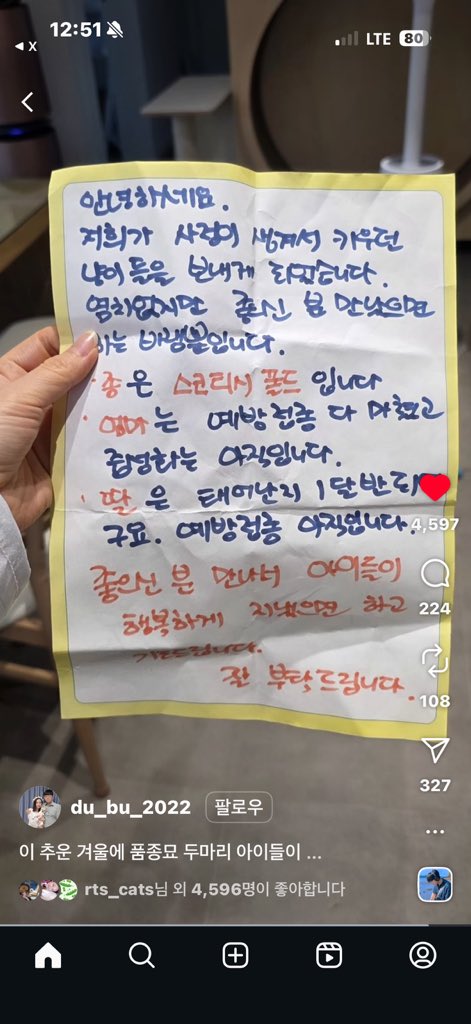 12:51
LTE 80
◀ X
안녕하세요.
저희가 사정이 생겨서 키우던
냥이들을 보내게 되었습니다.
염치없지만 좋으신 분 만났으면
하는 바램뿐입니다.
· 종은 스코티시 폴드입니다
· 엄마는 예방접종 다 마쳤고
중성화는 아직입니다.
· 딸은 태어난지 1달반
구요. 예방접종 아직입니다.
좋으신 분 만나서 아이들이
행복하게 지냈으면 하고
기도드립니다.
잘 부탁드립니다.
4,597
224
108
327
du_bu_2022 팔로우
이 추운 겨울에 품종묘 두마리 아이들이 ...
rts_cats님 외 4,596명이 좋아합니다